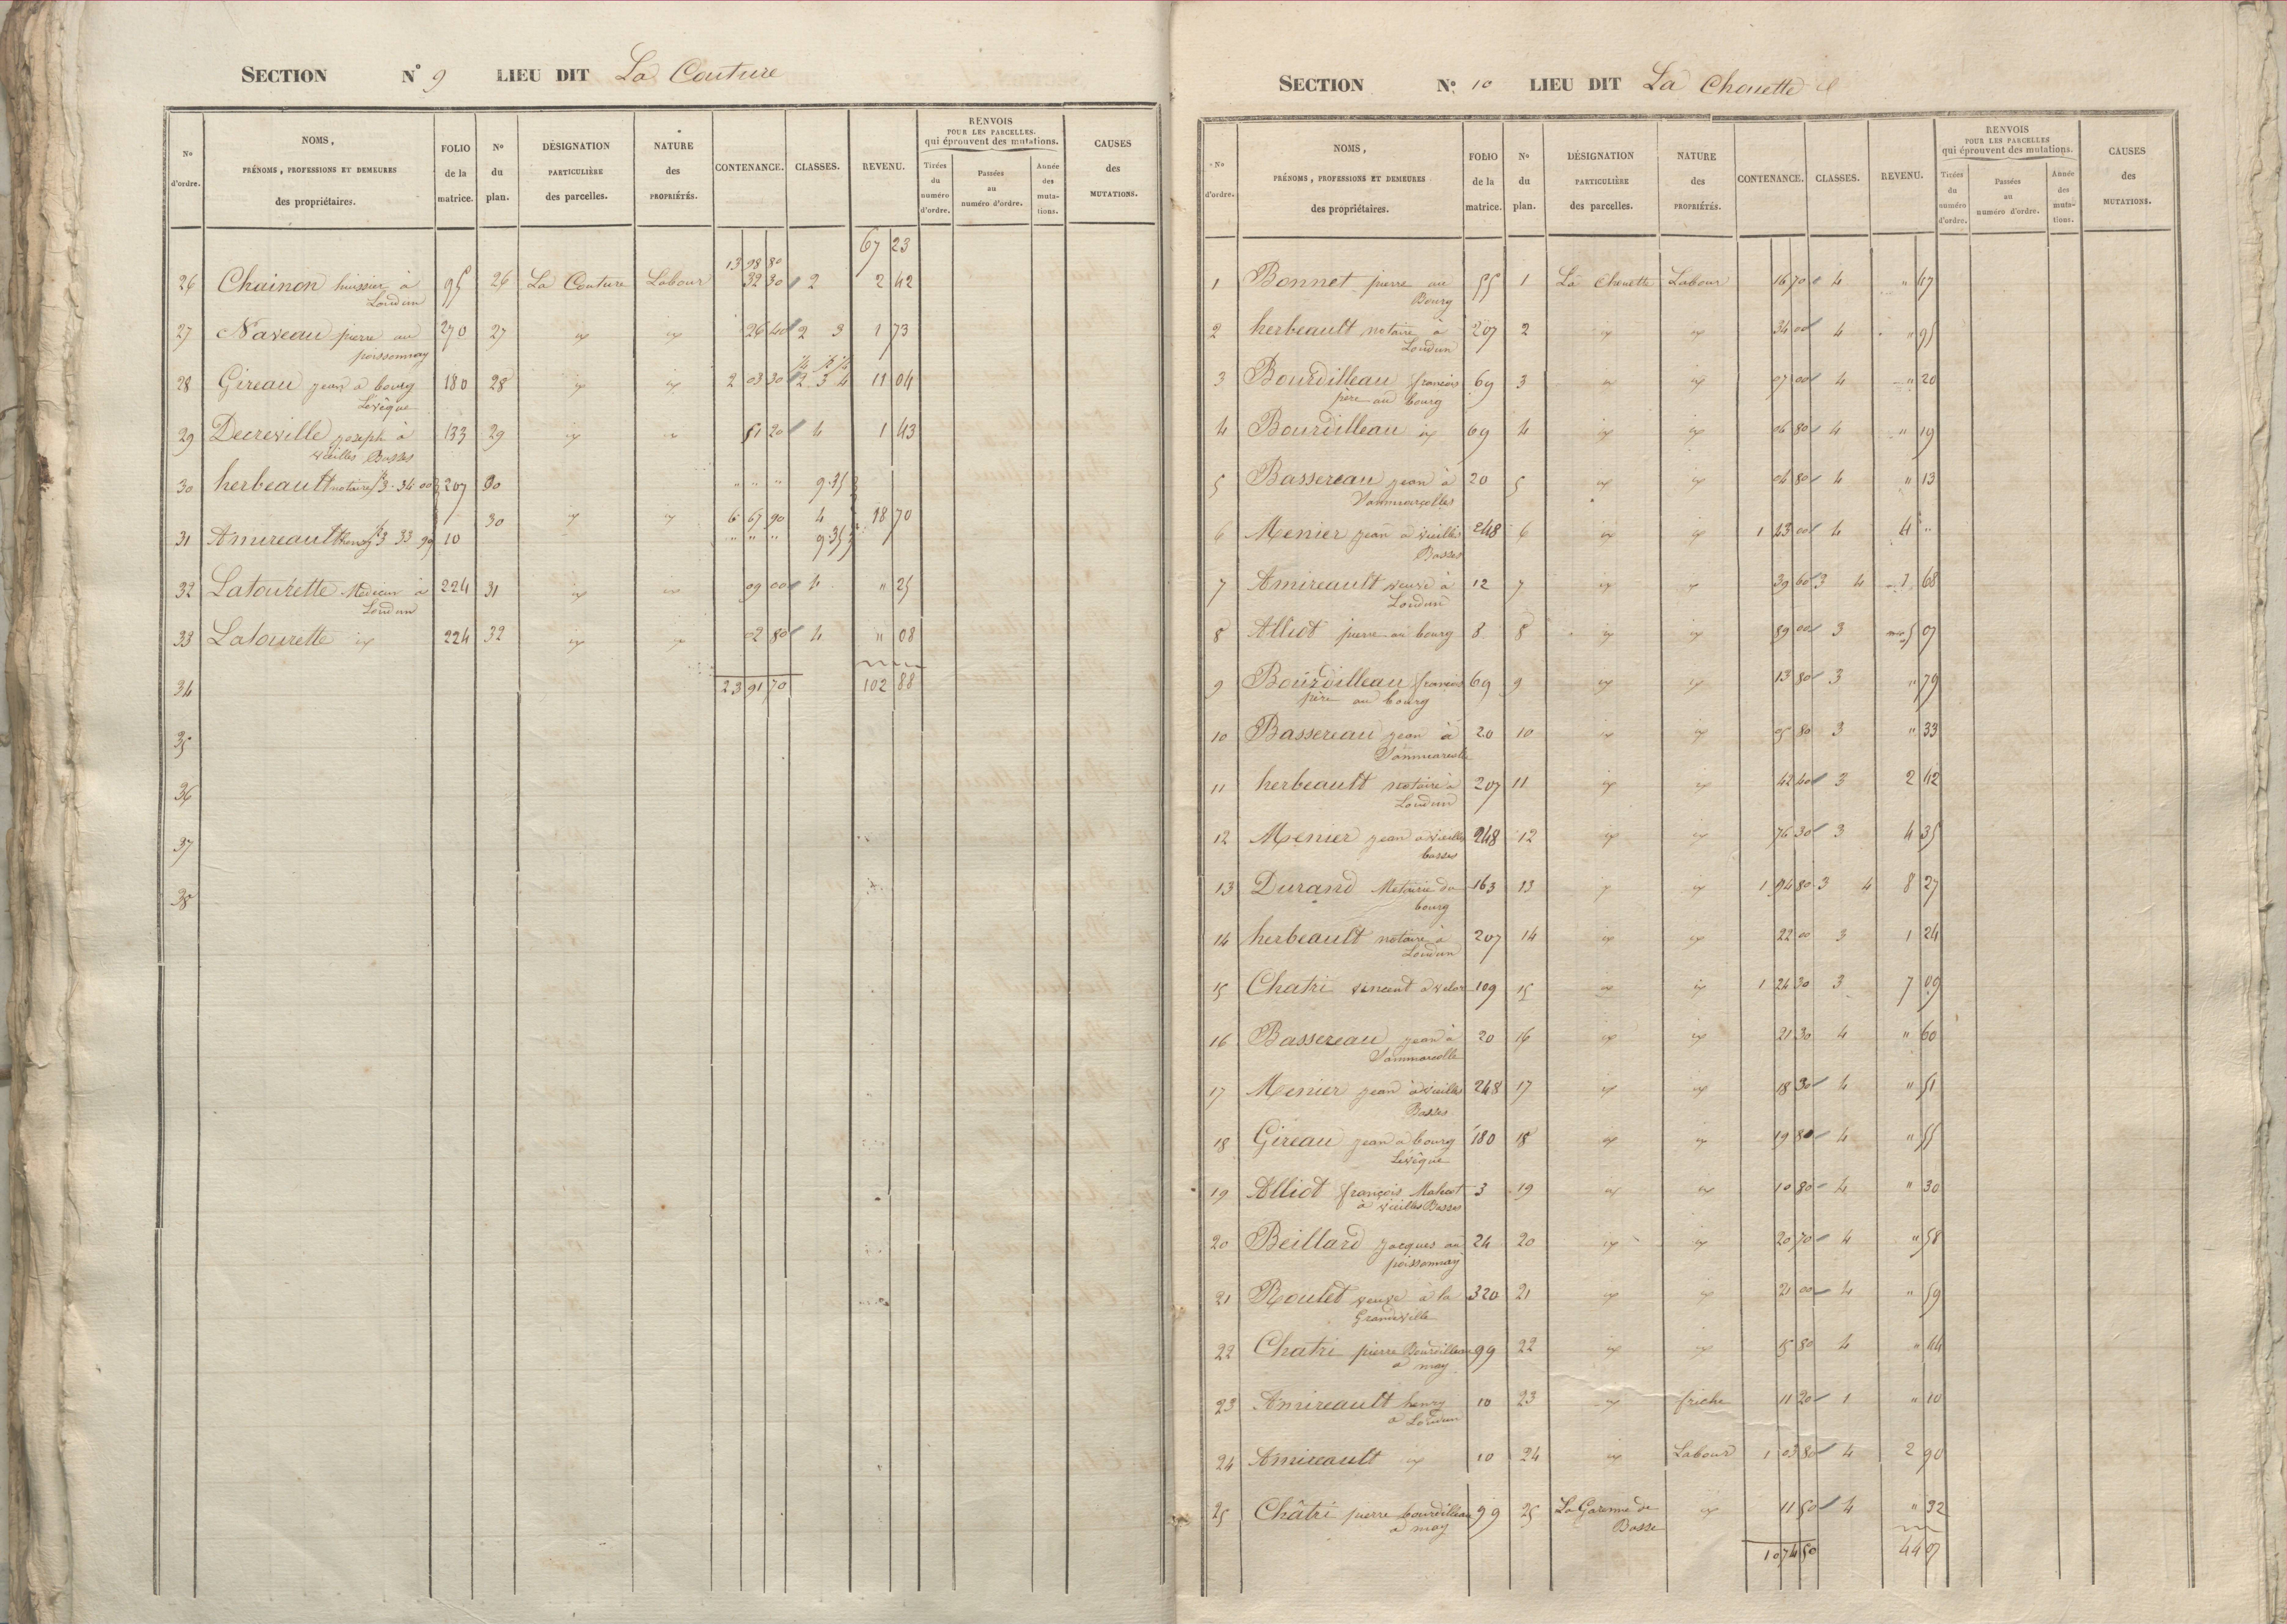 SECTION N° 9 LIEU DIT La Couture
N° d'ordre. NOMS, PRÉNOMS, PROFESSIONS ET DEMEURES des propriétaires. FOLIO de la matrice. N° du plan. DÉSIGNATION PARTICULIÈRE des parcelles. NATURE des PROPRIÉTÉS. CONTENANCE. CLASSES. REVENU. RENVOIS POUR LES PARCELLES qui éprouvent des mutations. Tirées du numéro d'ordre. Passées au numéro d'ordre. Année des mutations. CAUSES des MUTATIONS.
13 98 80 67 23
26 Chainon huissier à 95 26 La Couture Labour 32 30 2 2 42
Loudun
27 Naveau pierre au 270 27 id id 26 40 2 3 1 73
poissonnay
28 Gireau jean à bourg 180 28 id id 2 03 30 2 3 4 11 04
Levêque
29 Decreville joseph à 133 29 id id 51 20 4 1 43
vieilles Basses
30 herbeault notaire 3. 34 00 207 30 " " " 9.35
30 id id 6 67 90 4 18 70
31 Amireault henry 3 33 90 10 " " " 9.35
32 Latourette Médecin à 224 31 id id 09 00 4 " 25
Loudun
33 Latourette id 224 32 id id 02 80 4 " 08
34 23 91 70 102 88
35
36
37
38
SECTION N° 10 LIEU DIT La Chouette
N° d'ordre. NOMS, PRÉNOMS, PROFESSIONS ET DEMEURES des propriétaires. FOLIO de la matrice. N° du plan. DÉSIGNATION PARTICULIÈRE des parcelles. NATURE des PROPRIÉTÉS. CONTENANCE. CLASSES. REVENU. RENVOIS POUR LES PARCELLES qui éprouvent des mutations. Tirées du numéro d'ordre. Passées au numéro d'ordre. Année des mutations. CAUSES des MUTATIONS.
1 Bonnet pierre au 55 1 La Chouette Labour 16 70 4 " 47
Bourg
2 herbeault notaire à 207 2 id id 34 00 4 " 95
Loudun
3 Bourdilleau françois 69 3 id id 07 00 4 " 20
père au bourg
4 Bourdilleau id 69 4 id id 06 80 4 " 19
5 Bassereau jean à 20 5 id id 04 80 4 " 13
Sammarcolles
6 Menier jean à vieilles 248 6 id id 1 43 00 4 4 "
Basses
7 Amireault veuve à 12 7 id id 39 60 3 4 1 68
Loudun
8 Alliot pierre au bourg 8 8 id id 89 00 3 5 07
9 Bourdilleau françois 69 9 id id 13 80 3 " 79
père au bourg
10 Bassereau jean à 20 10 id id 05 80 3 " 33
Sammarcolle
11 herbeault notaire à 207 11 id id 42 40 3 2 42
Loudun
12 Menier jean à vieilles 248 12 id id 76 30 3 4 35
basses
13 Durand Metairie du 163 13 id id 1 94 80 3 4 8 27
bourg
14 herbeault notaire à 207 14 id id 22 00 3 1 24
Loudun
15 Chatri vincent à velor 109 15 id id 1 24 30 3 7 09
16 Bassereau jean à 20 16 id id 21 30 4 " 60
Sammarcolle
17 Menier jean à vieilles 248 17 id id 18 30 4 " 51
Basses
18 Gireau jean à bourg 180 18 id id 19 80 4 " 55
Levêque
19 Alliot françois Malecot 3 19 id id 10 80 4 " 30
à vieilles Basses
20 Beillard jacques au 24 20 id id 20 70 4 " 58
poissonnay
21 Roulet veuve à la 320 21 id id 21 00 4 " 59
Grandville
22 Chatri pierre Bourdilleau 99 22 id id 15 80 4 " 44
à may
23 Amireault henry 10 23 id friche 11 20 1 " 10
à Loudun
24 Amireault id 10 24 id Labour 1 03 80 4 2 90
25 Châtri pierre bourdilleau 99 25 La Garenne de id 11 50 4 " 32
à may Basse
10 74 50 44 07